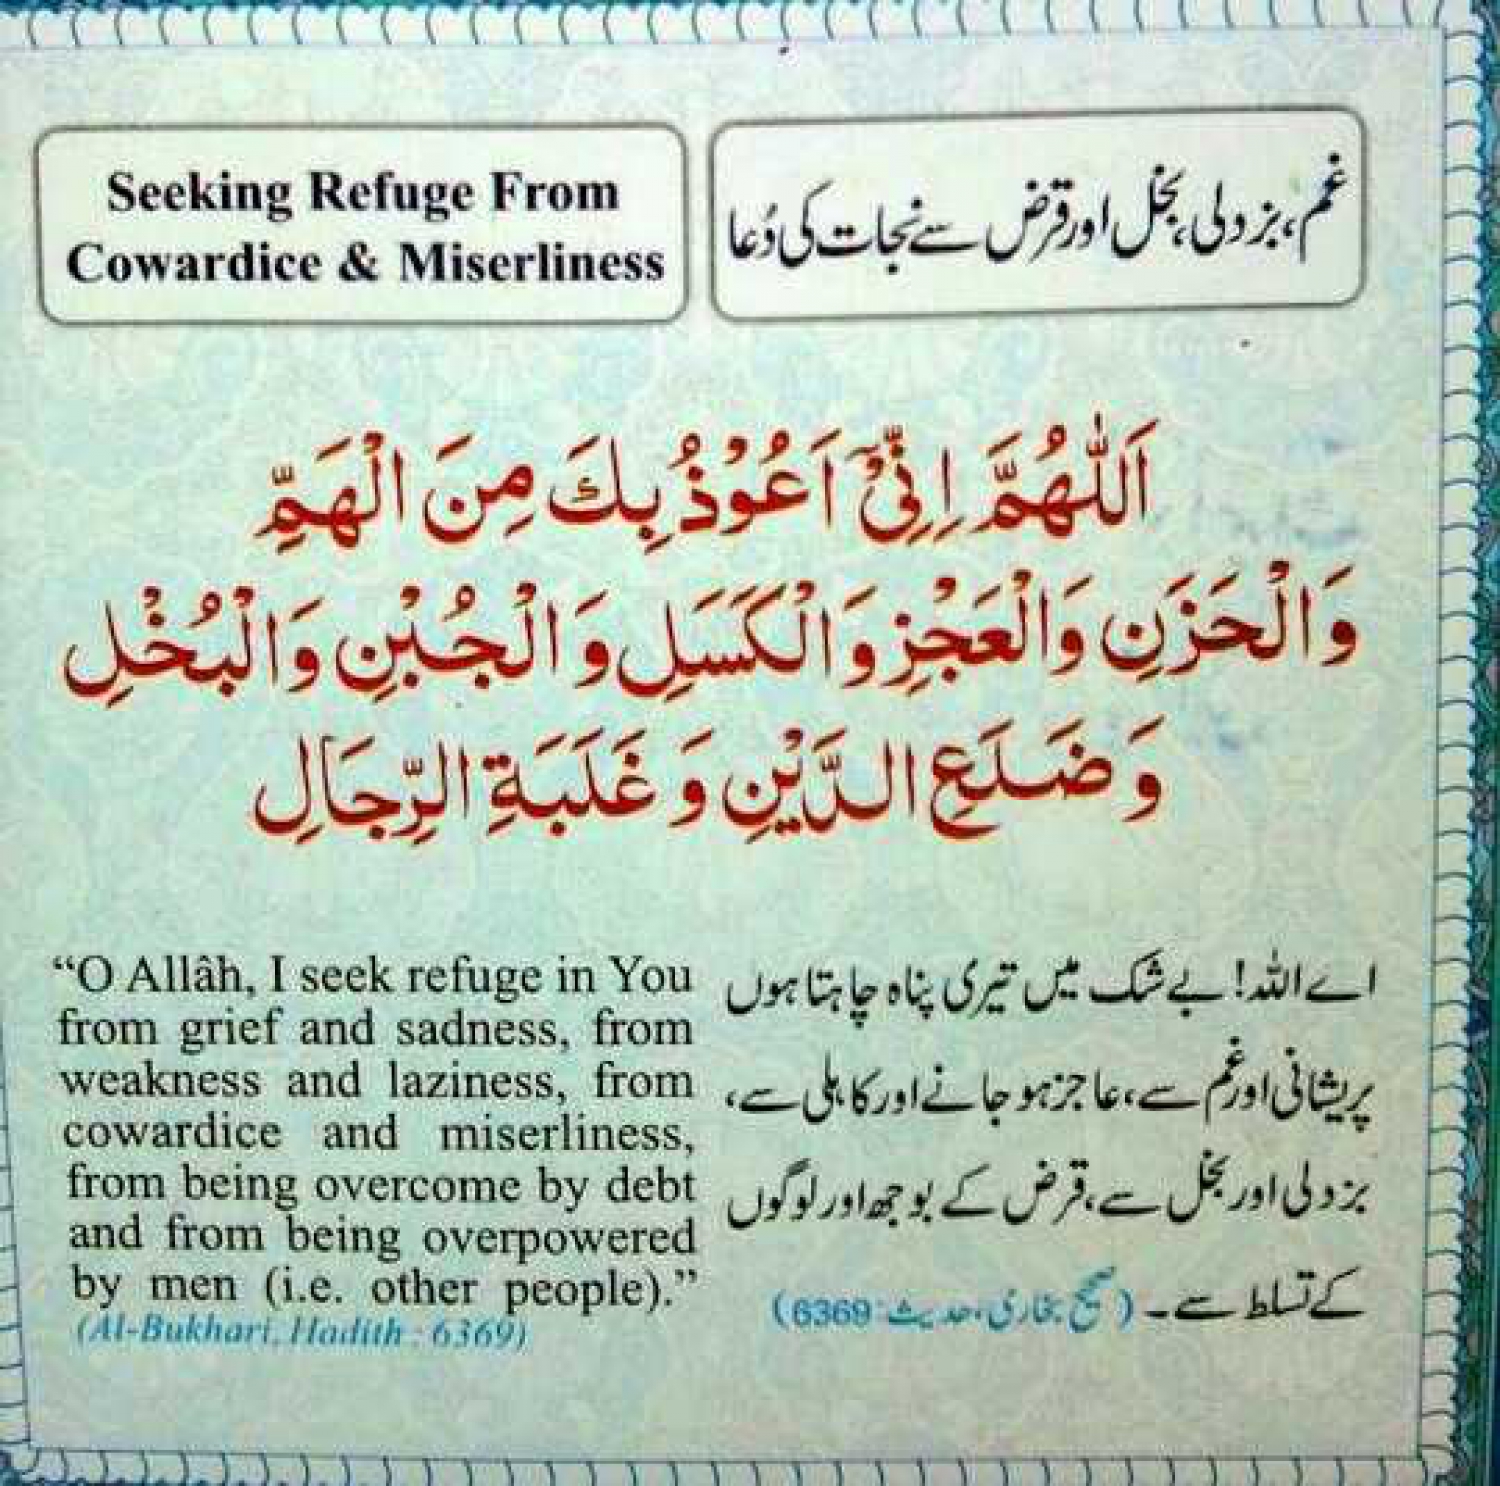 Seeking Refuge From
Cowardice & Miserliness
غم، بزدلی، بخل اور قرض سے نجات کی دُعا
اَللّٰهُمَّ اِنِّیْۤ اَعُوْذُ بِكَ مِنَ الْهَمِّ
وَالْحَزَنِ وَالْعَجْزِ وَالْكَسَلِ وَالْجُبْنِ وَالْبُخْلِ
وَضَلَعِ الدَّيْنِ وَ غَلَبَةِ الرِّجَالِ
“O Allâh, I seek refuge in You
from grief and sadness, from
weakness and laziness, from
cowardice and miserliness,
from being overcome by debt
and from being overpowered
by men (i.e. other people).”
(Al-Bukhari, Hadith : 6369)
اے اللہ! بے شک میں تیری پناہ چاہتا ہوں
پریشانی اور غم سے، عاجز ہو جانے اور کاہلی سے،
بزدلی اور بخل سے، قرض کے بوجھ اور لوگوں
کے تسلط سے۔ (صحیح بخاری، حدیث: 6369)